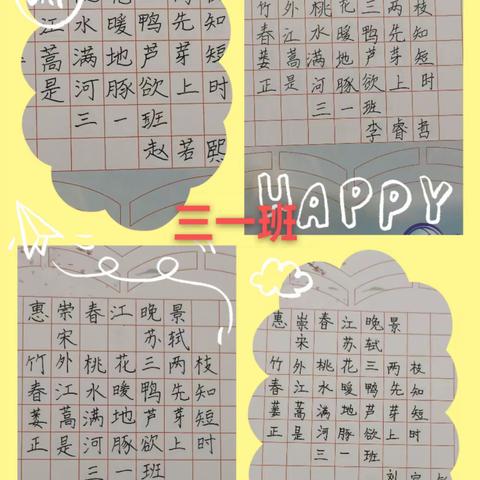 江水暖鸭先知
蒿满地芦芽短
是河豚欲上时
三一班
赵若熙
竹外桃花三两枝
春江水暖鸭先知
蒌蒿满地芦芽短
正是河豚欲上时
三一班
李睿哲
HAPPY
三一班
惠崇春江晚景
宋 苏轼
竹外桃花三两枝
春江水暖鸭先知
蒌蒿满地芦芽短
正是河豚欲上时
三一班
惠崇春江晚景
宋 苏轼
竹外桃花三两枝
春江水暖鸭先知
蒌蒿满地芦芽短
正是河豚欲上时
三一班
刘